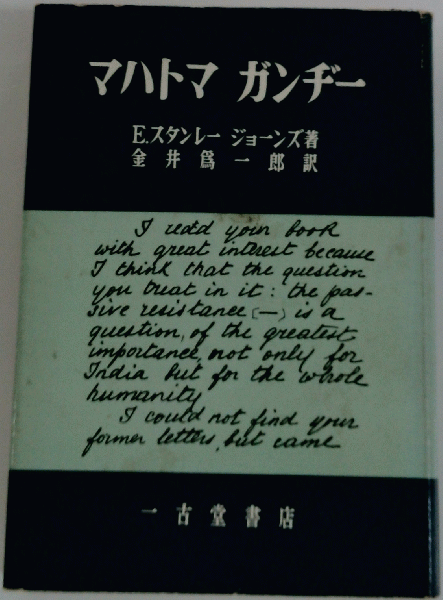 マハトマ ガンヂー
E.スタンレー ジョーンズ著
金井為一郎訳
I read your book
with great interest because
I think that the question
you treat in it: the pas-
sive resistance [—] is a
question, of the greatest
importance, not only for
India but for the whole
humanity
I could not find your
former letters, but came
一古堂書店